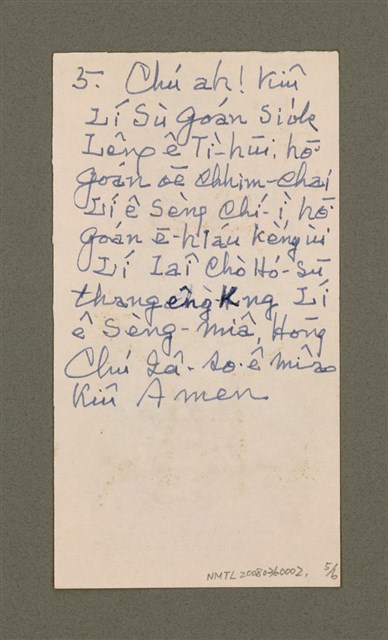 5. Chú ah! Kiû
Lí Sù Goán Siók
Lêng ê Tì-hūi, hō͘
goán oē Chhim-Chai
Lí ê Sèng Chí-ì hō͘
goán ē-hiáu kèng ùi
Lí Laî Chò Hó-Sū
thang êng Kng Lí
ê Sèng-miâ, Hōng
Chú Iâ-so͘ ê miâ
Kiû Amen
NMTL20080360002, 5/6